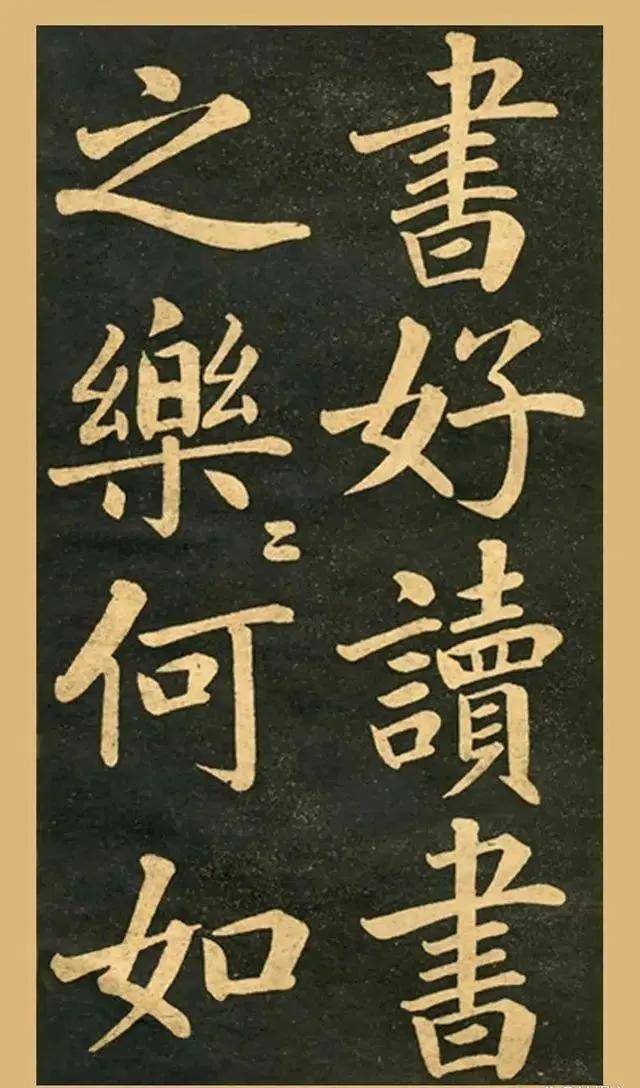 書好讀書
之樂〻何如